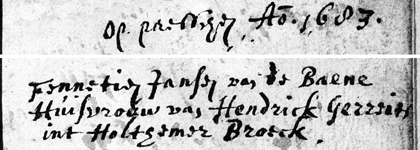 op paesschen Ao. 1683.
Fennetien Jansen van de Baene
Huisvrouw van Hendrick Gerrits
int Holthemer Broeck.